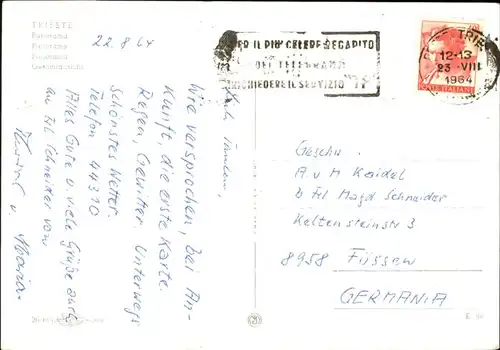 TRIESTE
Panorama
22.8.64
PER IL PIU' CELERE RECAPITO
DEI TELEGRAMMI
RICHIEDERE IL SERVIZIO "TP"
TRIE
12-13
23 VIII
1964
POSTE ITALIANE
Wie versprochen, bei An-
kunft, die erste Karte.
Regen, Gewitter. Unterwegs
Schönstes Wetter.
Telefon 44370
Alles Gute u. viele Grüße auch
an Frl. Schneider von
u. Maria.
Geschw.
A u M Keidel
b Frl Magd Schneider
Keltensteinstr 3
8958 Füssen
GERMANIA